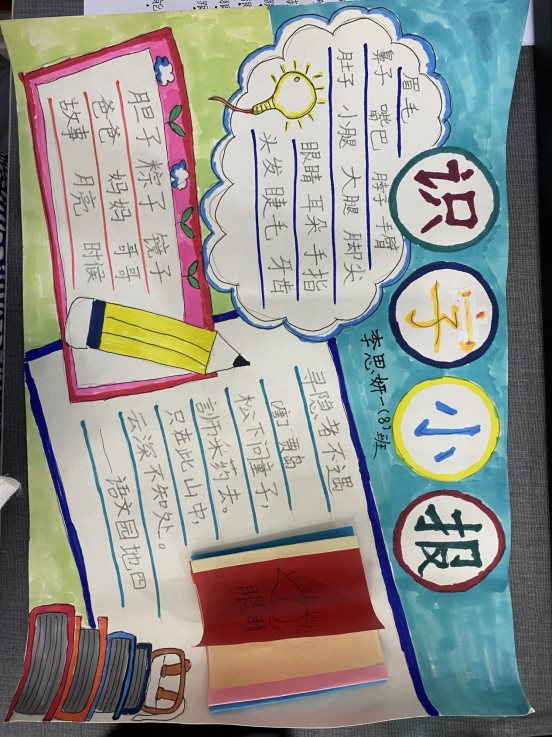 识字小报
李思妍一(8)班
眉毛
鼻子 嘴巴 脖子 手臂
肚子 小腿 大腿 脚尖
眼睛 耳朵 手指
头发 睫毛 牙齿
胆子 粽子 镜子
爸爸 妈妈 哥哥
故事 月亮 时候
寻隐者不遇
[唐] 贾岛
松下问童子,
言师采药去。
只在此山中,
云深不知处。
——语文园地四
眼睛